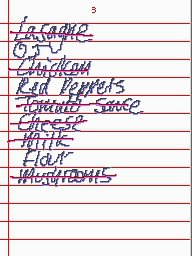 3
Lasagne
OJ
Chicken
Red Peppers
Tomato Sauce
Cheese
Milk
Flour
Mushrooms